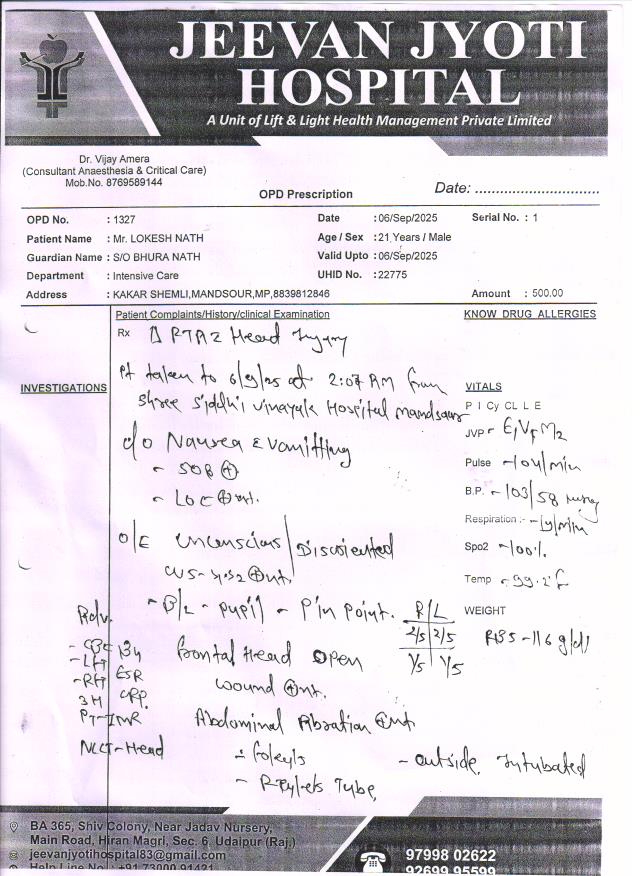 JEEVAN JYOTI
HOSPITAL
A Unit of Lift & Light Health Management Private Limited
Dr. Vijay Amera
(Consultant Anaesthesia & Critical Care)
Mob.No. 8769589144
OPD Prescription
Date: ..............................
OPD No. : 1327 Date : 06/Sep/2025 Serial No. : 1
Patient Name : Mr. LOKESH NATH Age / Sex : 21 Years / Male
Guardian Name : S/O BHURA NATH Valid Upto : 06/Sep/2025
Department : Intensive Care UHID No. : 22775
Address : KAKAR SHEMLI,MANDSOUR,MP,8839812846 Amount : 500.00
Patient Complaints/History/clinical Examination KNOW DRUG ALLERGIES
Rx Δ RTA Head Injury
Pt taken to 6/9/25 at 2:07 AM from
INVESTIGATIONS
Shree Siddhi Vinayak Hospital Mandsaur
VITALS
P I Cy CL L E
c/o Nausea & vomitting
JVP - E1 M2
- SOB ⊕
Pulse - 104/min
- LOC ⊕nt.
B.P. - 103/58 mmHg
Respiration :- /min
O/E unconscious / Disoriented
Spo2 - 100%
⊕nt.
Temp - 99.2°F
- B/L - pupil - Pin point. R L
WEIGHT
2/5 2/5
1/5 1/5
RBS - 116 g/dl
Adv.
- CBC
- LFT ESR
- RFT CRP.
PT-INR
NCCT-Head
frontal Head open
wound ⊕nt.
Abdominal ⊕nt
- foleys
- Ryle's Tube
- outside Intubated
BA 365, Shiv Colony, Near Jadav Nursery,
Main Road, Hiran Magri, Sec. 6, Udaipur (Raj.)
jeevanjyotihospital83@gmail.com
Help Line No : +91 73000 91421
97998 02622
92699 95599